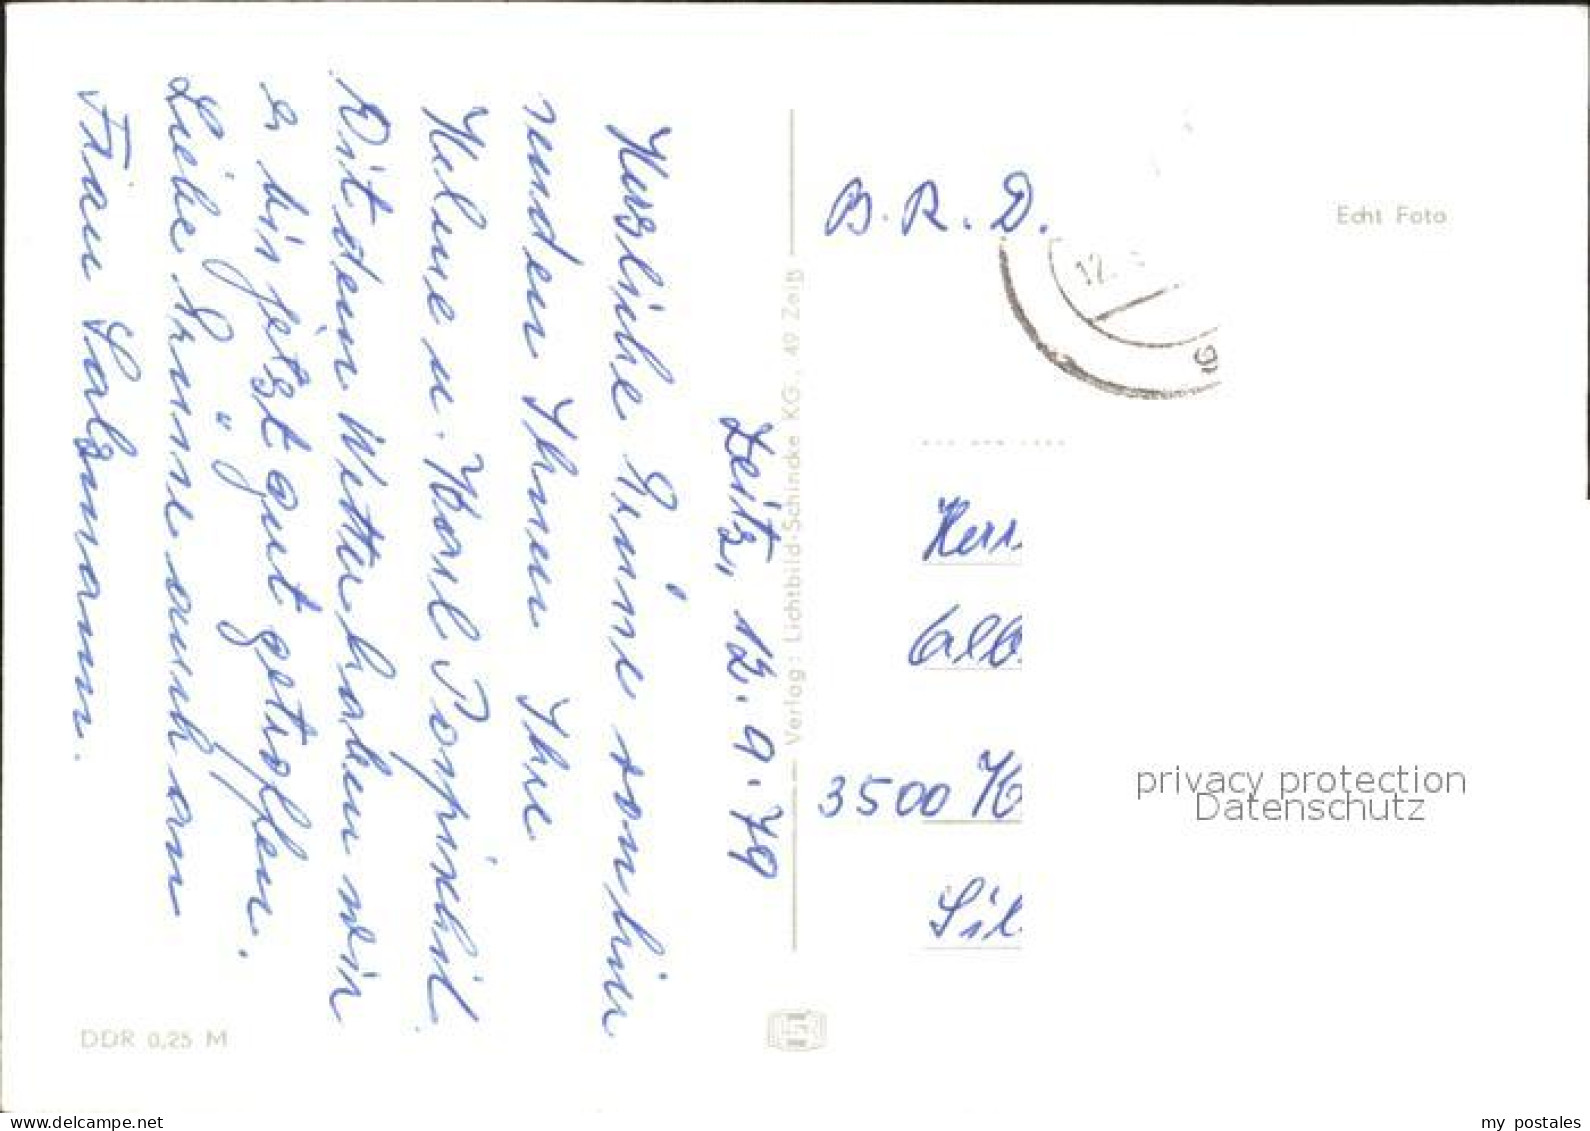 Zeitz, 12.9.79
Herzliche Grüsse von hier
senden Ihnen Ihre
Helene u. Karl
Mit dem Wetter haben wir
es bis jetzt gut getroffen.
Liebe Grüsse auch an
Frau Salzmann.
DDR 0,25 M
Verlag: Lichtbild-Schincke KG., 49 Zeitz
B.R.D.
12.
Echt Foto
Herr
3500 K
privacy protection
Datenschutz
my postales